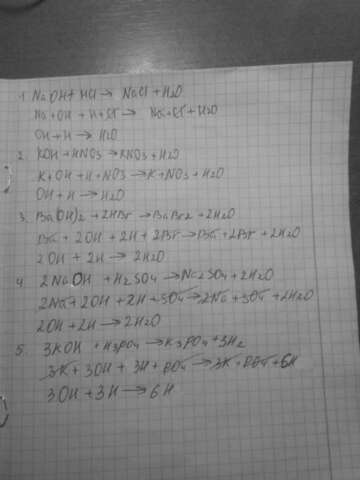 1. NaOH + HCl → NaCl + H2O
Na + OH + H + Cl → Na + Cl + H2O
OH + H → H2O
2. KOH + HNO3 → KNO3 + H2O
K + OH + H + NO3 → K + NO3 + H2O
OH + H → H2O
3. Ba(OH)2 + 2HBr → BaBr2 + 2H2O
Ba + 2OH + 2H + 2Br → Ba + 2Br + 2H2O
2OH + 2H → 2H2O
4. 2NaOH + H2SO4 → Na2SO4 + 2H2O
2Na + 2OH + 2H + SO4 → 2Na + SO4 + 2H2O
2OH + 2H → 2H2O
5. 3KOH + H3PO4 → K3PO4 + 3H2
3K + 3OH + 3H + PO4 → 3K + PO4 + 6H
3OH + 3H → 6H